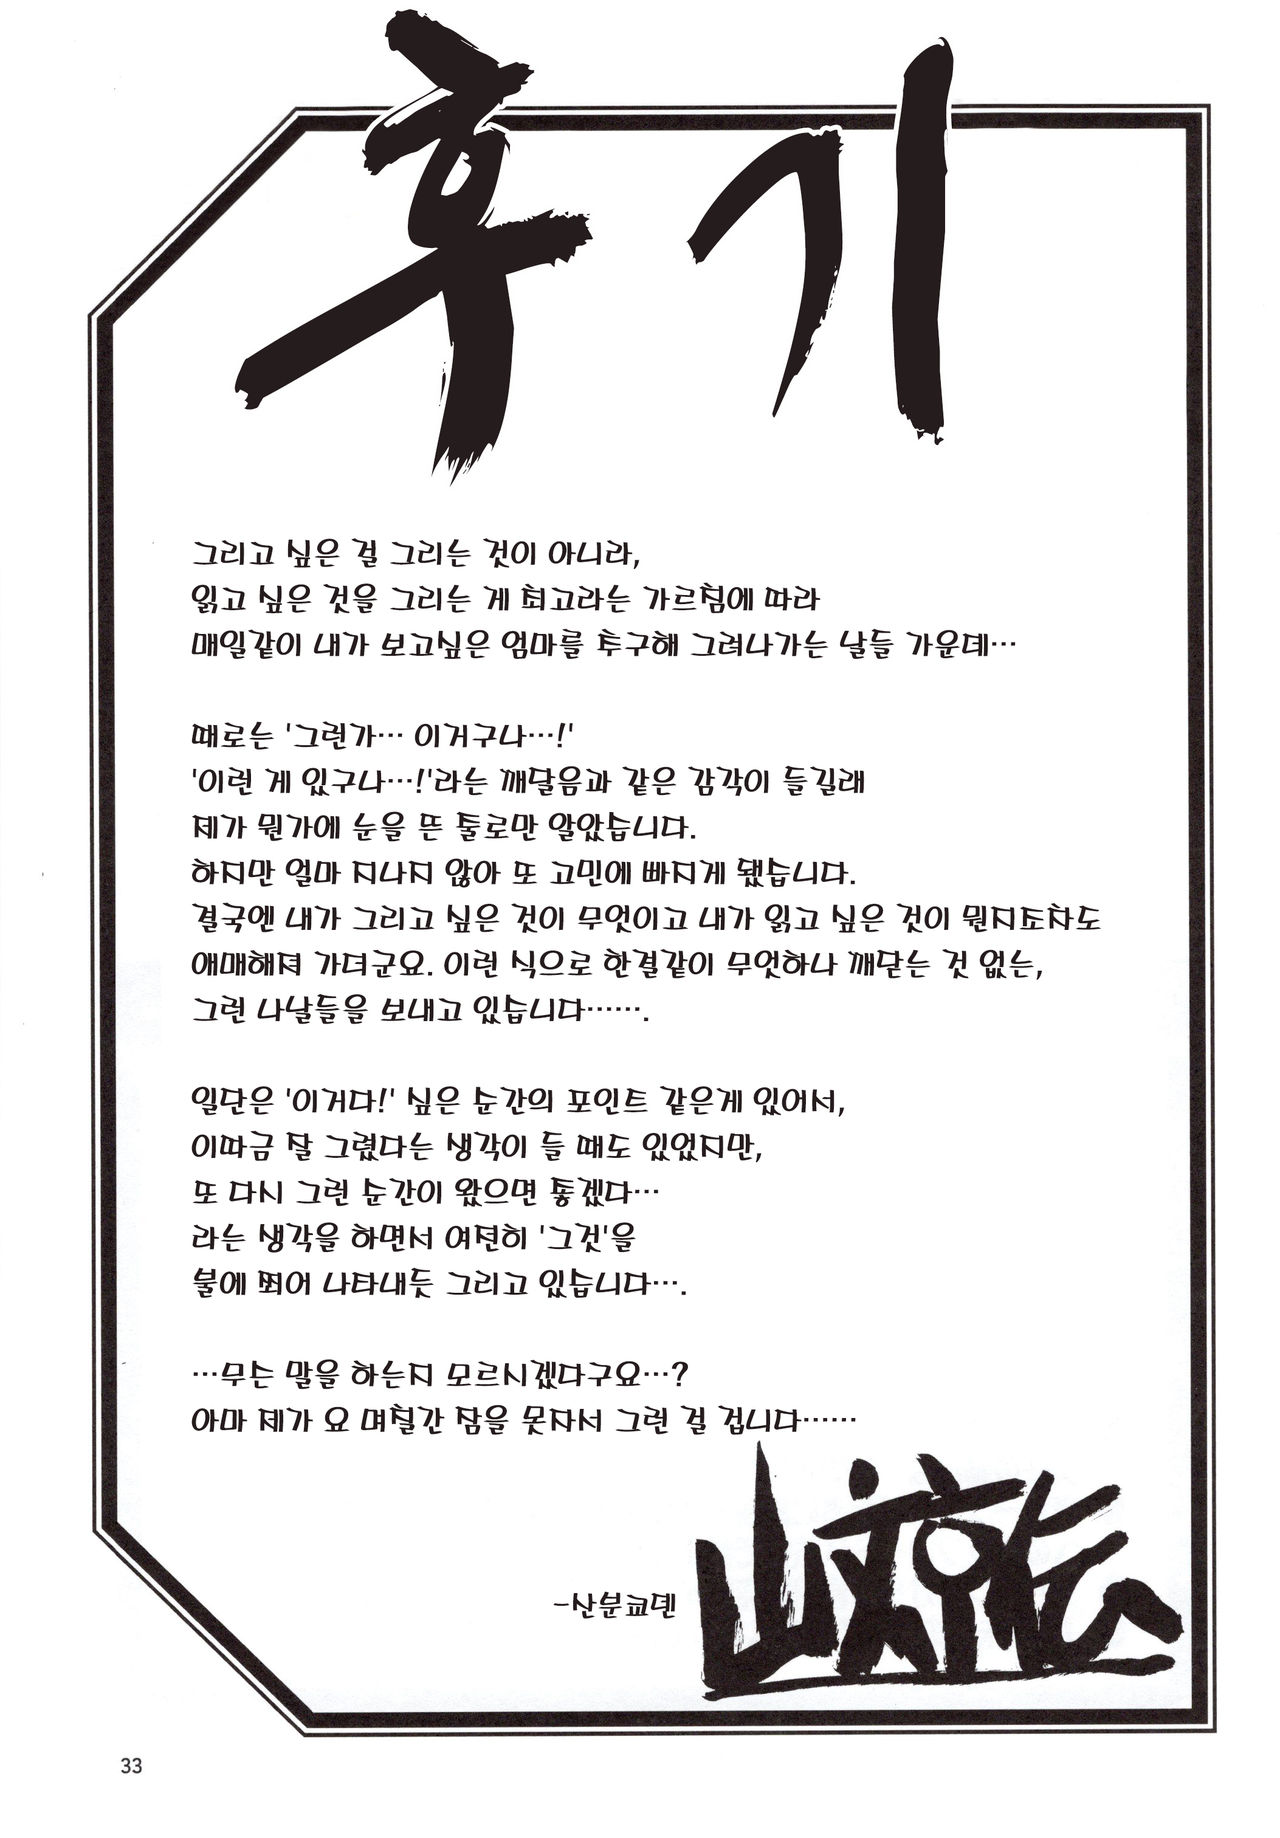 후기
그리고 싶은 걸 그리는 것이 아니라,
읽고 싶은 것을 그리는 게 최고라는 가르침에 따라
매일같이 내가 보고싶은 엄마를 투구해 그려나가는 날들 가운데…
때로는 '그런가… 이거구나…!'
'이런 게 있구나…!'라는 깨달음과 같은 감각이 들길래
제가 뭔가에 눈을 뜬 줄로만 알았습니다.
하지만 얼마 지나지 않아 또 고민에 빠지게 됐습니다.
결국엔 내가 그리고 싶은 것이 무엇이고 내가 읽고 싶은 것이 뭔지조차도
애매해져 가더군요. 이런 식으로 한결같이 무엇하나 깨닫는 것 없는,
그런 나날들을 보내고 있습니다…….
일단은 '이거다!' 싶은 순간의 포인트 같은게 있어서,
이따금 잘 그렸다는 생각이 들 때도 있었지만,
또 다시 그런 순간이 왔으면 좋겠다…
라는 생각을 하면서 여전히 '그것'을
불에 쬐어 나타내듯 그리고 있습니다….
…무슨 말을 하는지 모르시겠다구요…?
아마 제가 요 며칠간 잠을 못자서 그런 걸 겁니다……
-산분교덴
山文京伝
33